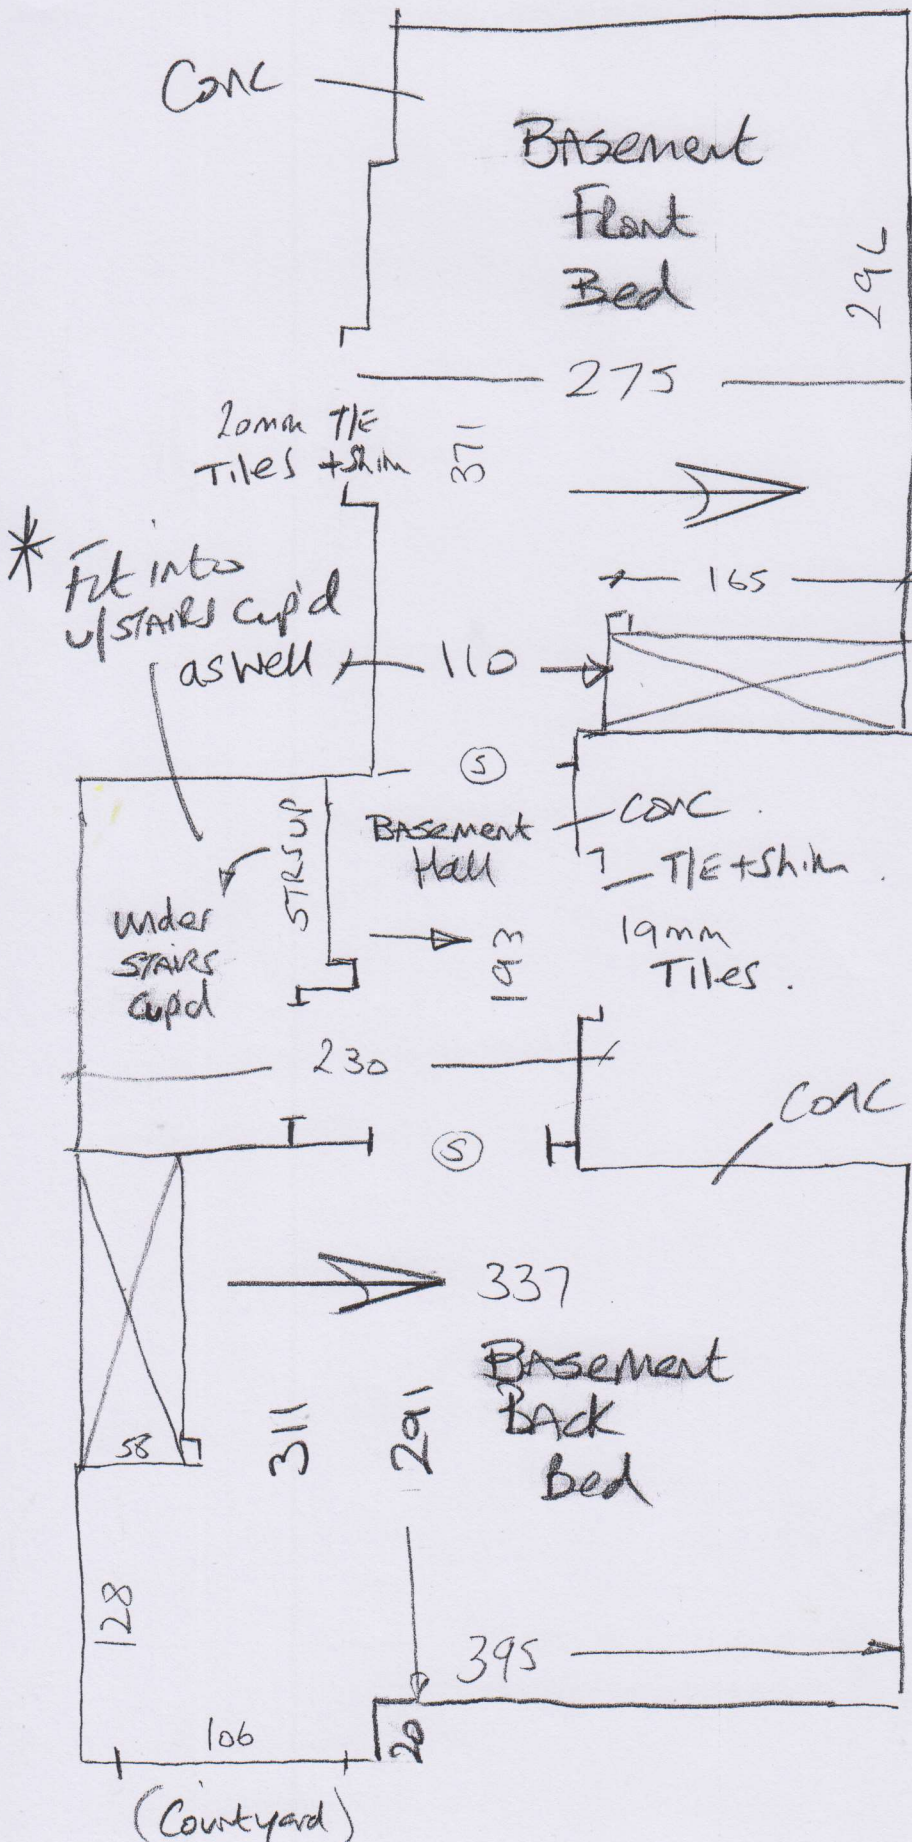 Conc
Basement
Front
Bed
29L
275
20mm T/E
Tiles + Shim
371
*
Fit into
u/STAIRS Cup'd
as well
165
110
S
STRS UP
Basement
Hall
CONC.
T/E + Shim.
19mm
Tiles.
under
STAIRS
Cup'd
193
230
CONC
S
337
Basement
Back
Bed
58
311
291
128
395
106
20
(Courtyard)